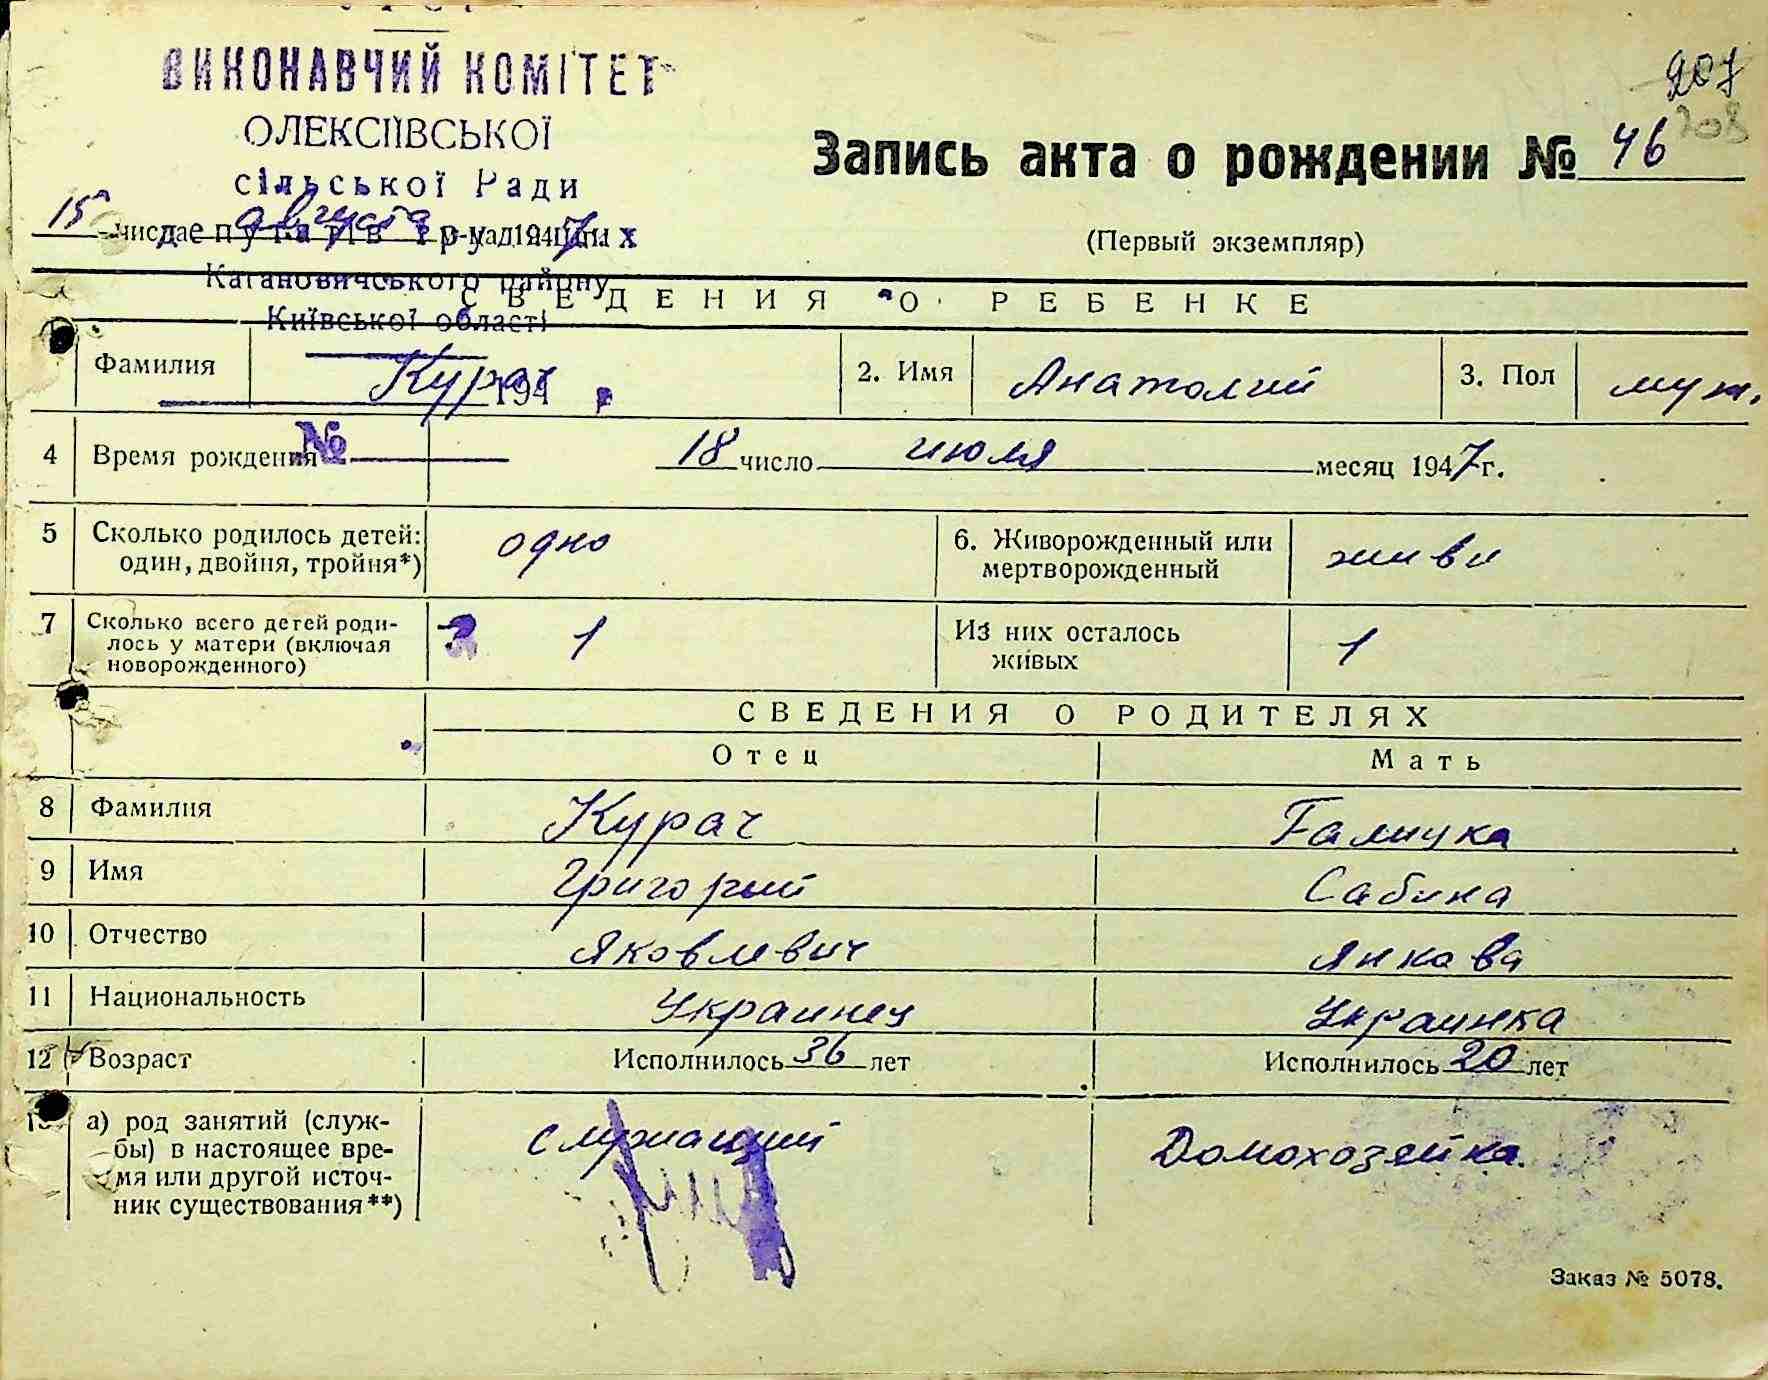 ВИКОНАВЧИЙ КОМІТЕТ
ОЛЕКСІЇВСЬКОЇ
сільської Ради
депутатів трудящих
Кагановичського району
Київської області
194 р.
№
207
208
Запись акта о рождении № 46
15 число августа м-ца 1947
(Первый экземпляр)
СВЕДЕНИЯ О РЕБЕНКЕ
Фамилия Курач 2. Имя Анатолий 3. Пол муж.
4 Время рождения 18 число июля месяц 1947 г.
5 Сколько родилось детей: один, двойня, тройня*) одно 6. Живорожденный или мертворожденный живи
7 Сколько всего детей роди-
лось у матери (включая
новорожденного) 1 Из них осталось живых 1
СВЕДЕНИЯ О РОДИТЕЛЯХ
Отец Мать
8 Фамилия Курач Галицка
9 Имя Григорий Сабина
10 Отчество Яковлевич Янкова
11 Национальность Украинец Украинка
12 Возраст Исполнилось 36 лет Исполнилось 20 лет
13 а) род занятий (служ-
бы) в настоящее вре-
мя или другой источ-
ник существования**) служащий Домохозяйка.
Заказ № 5078.